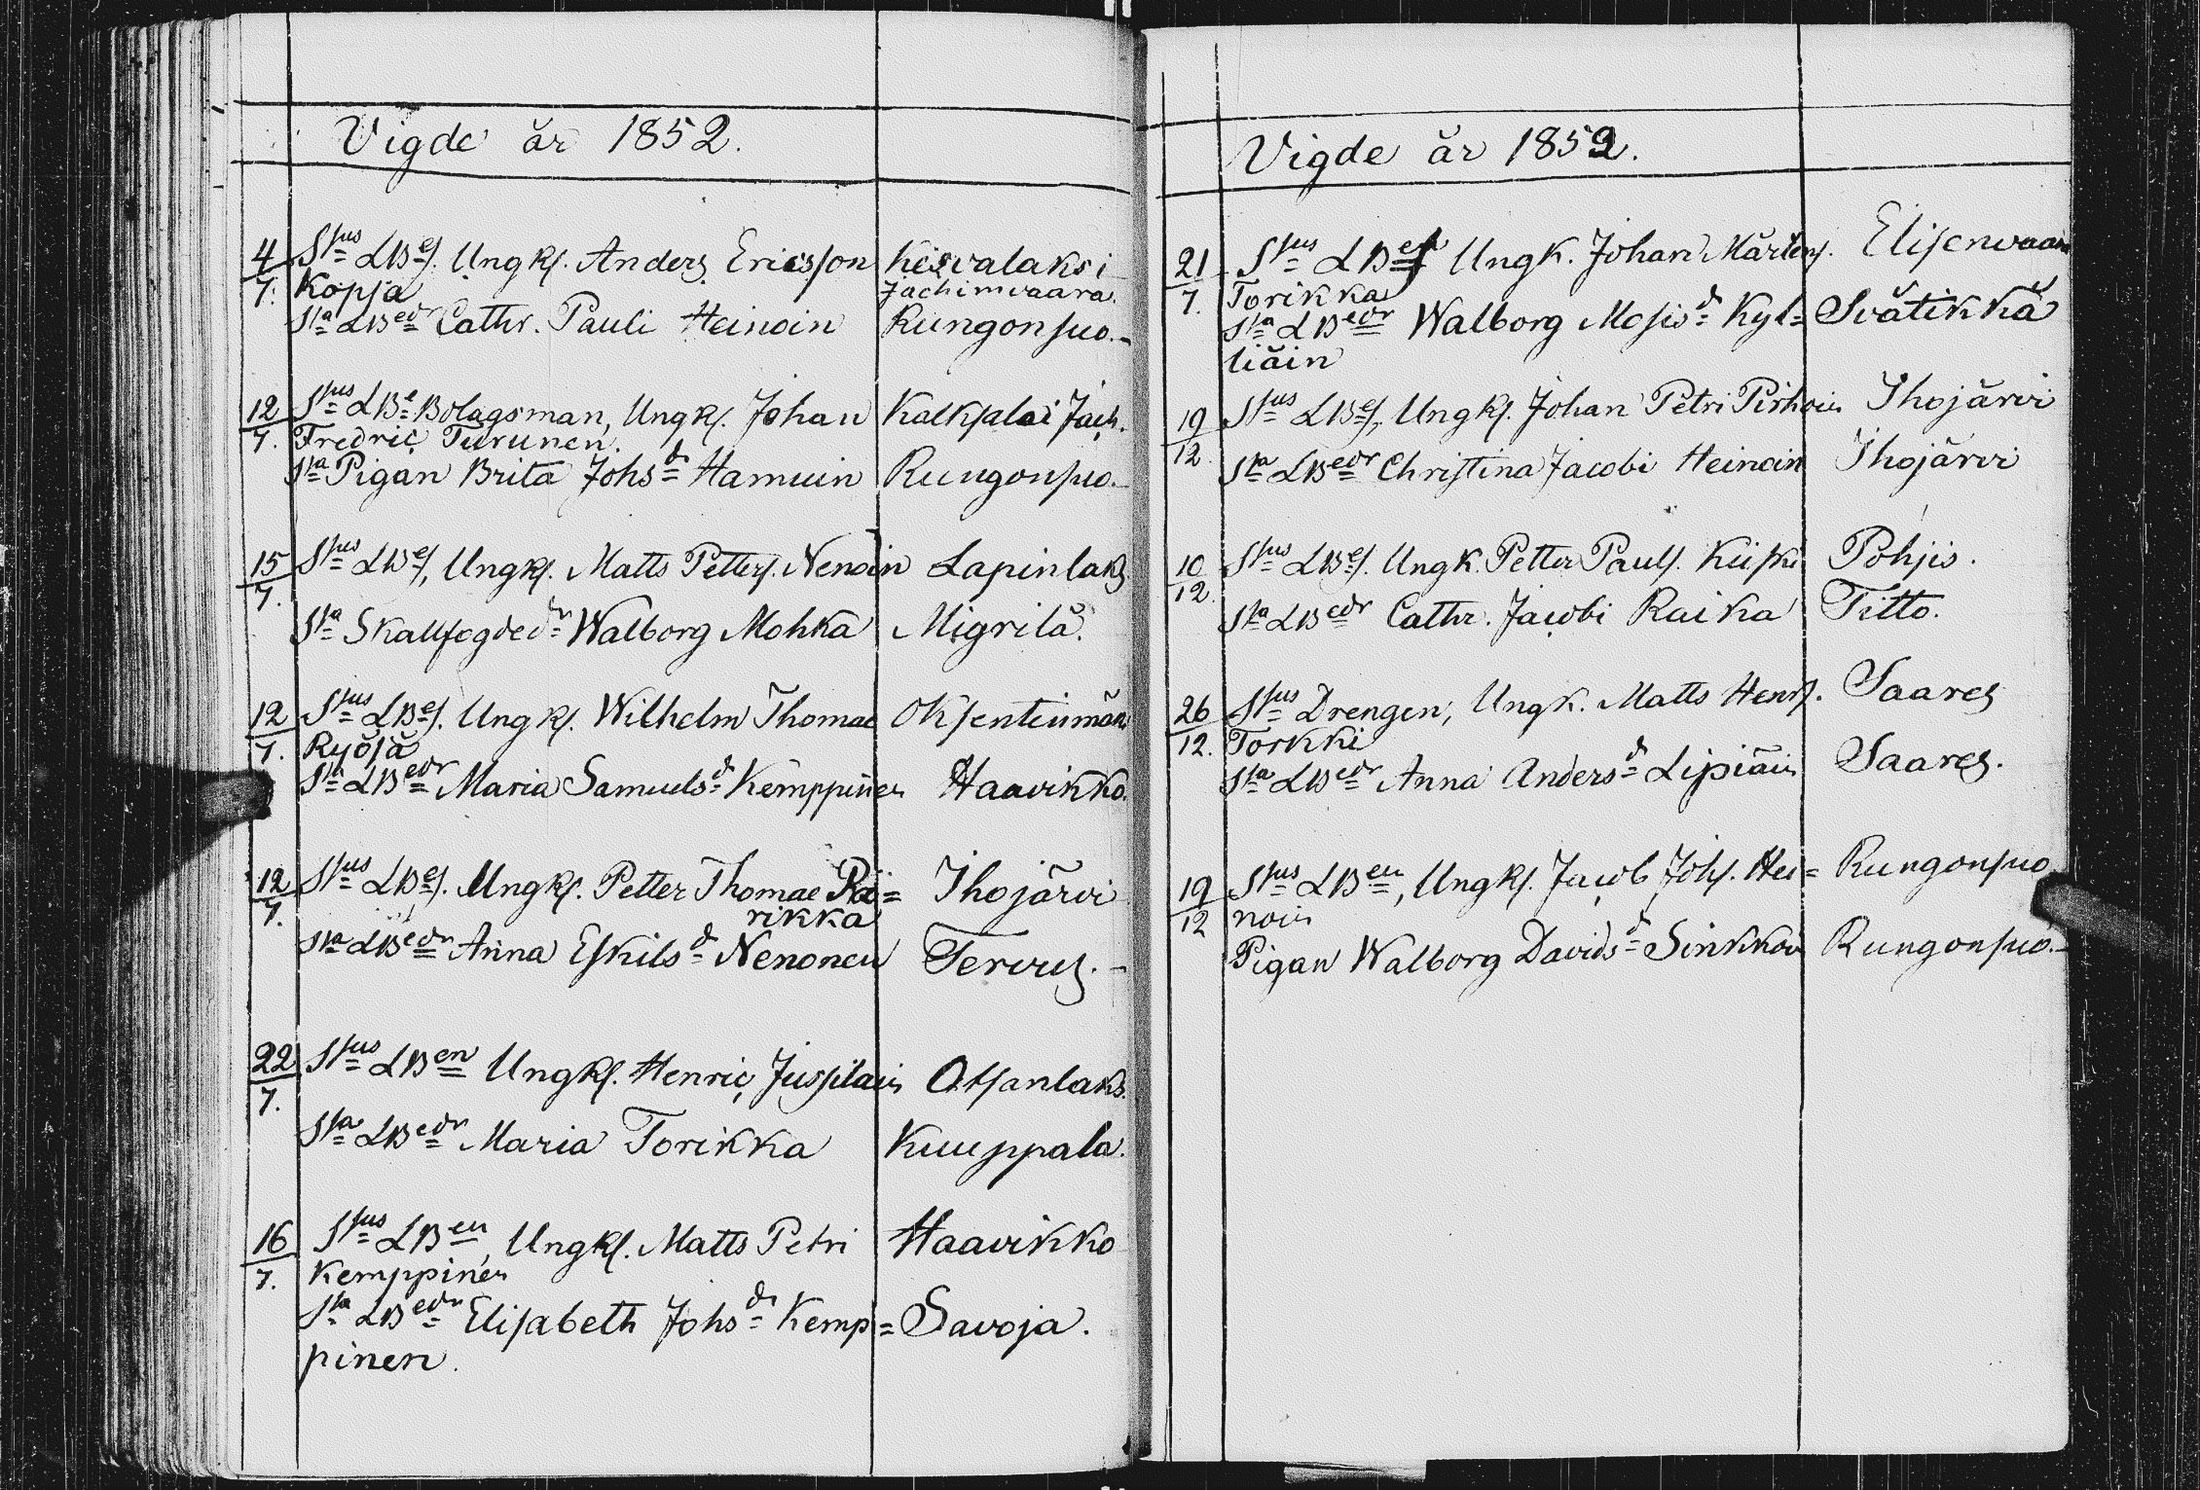 Vigde år 1852.
4/7. Sjus LBes. Ungkf. Anders Ericsson Kesvalaksi
Kopsa Jachimvaara.
Sta LBedr Cathr. Pauli Heinoin Rungonsuo.
12/7. Sjus LBe Bolagsman, Ungkf. Johan Kalksaloi Jach.
Fredric Turunen.
Sta Pigan Brita Johsdr Hamuin Rungonsuo.
15/7. Sjus LBes, Ungkf. Matts Petters. Nenoin Lapinlaks
Sta Skallfogdedr Walborg Mohka Migrilä.
12/7. Sjus LBes. Ungkf. Wilhelm Thomae
Ryösä
Sta LBedr Maria Samuelsd Kemppinen Haavikko.
12/7. Sjus LBes. Ungkf. Petter Thomae Rä= Ihojärvi
rikka
Sta LBedr Anna Eskilsd Nenonen Tervus.
22/7. Sjus LBen Ungkf. Henric Otsanlaks.
Sta LBedr Maria Torikka Kuuppala.
16/7. Sjus LBen, Ungkf. Matts Petri Haavikko
Kemppinen
Sta LBedr Elisabeth Johsdr Kemp= Savoja.
pinen.
Vigde år 1852.
21/7. Sjus LBes Ungk. Johan Mårtens. Elisenvaara
Torikka
Sta LBedr Walborg Mosisd Kyl= Svätikkä
liäin
19/12. Sjus LBes, Ungkf. Johan Petri Pirhoin Ihojärvi
Sta LBedr Christina Jacobi Heinoin Ihojärvi
10/12. Sjus LBes. Ungk. Petter Pauls. Kiiski Pohjis.
Sta LBedr Cathr. Jacobi Raika Titto.
26/12. Sjus Drengen, Ungk. Matts Henrs. Saares
Torkki
Sta LBedr Anna Andersd Lipiäin Saares.
19/12 Sjus LBen, Ungkf. Jacob Johs. Hei= Rungonsuo
noin
Pigan Walborg Davidsd Sinkkoin Rungonsuo.